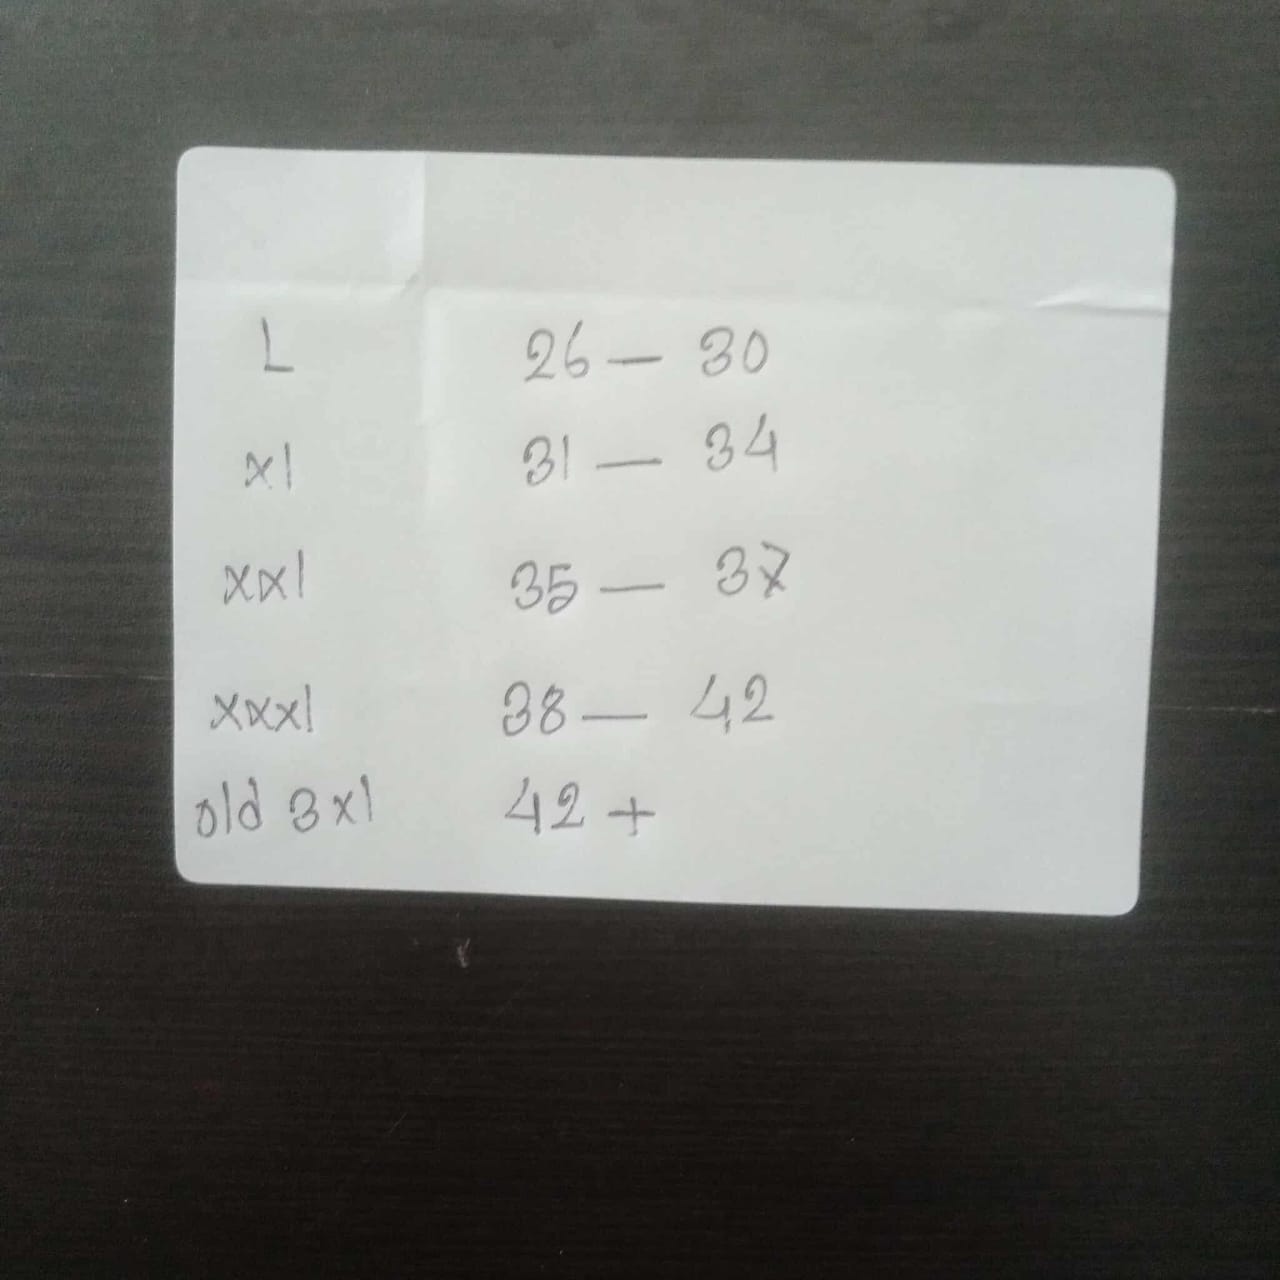 L 26 — 30
xl 31 — 34
xxl 35 — 37
xxxl 38 — 42
old 3xl 42 +